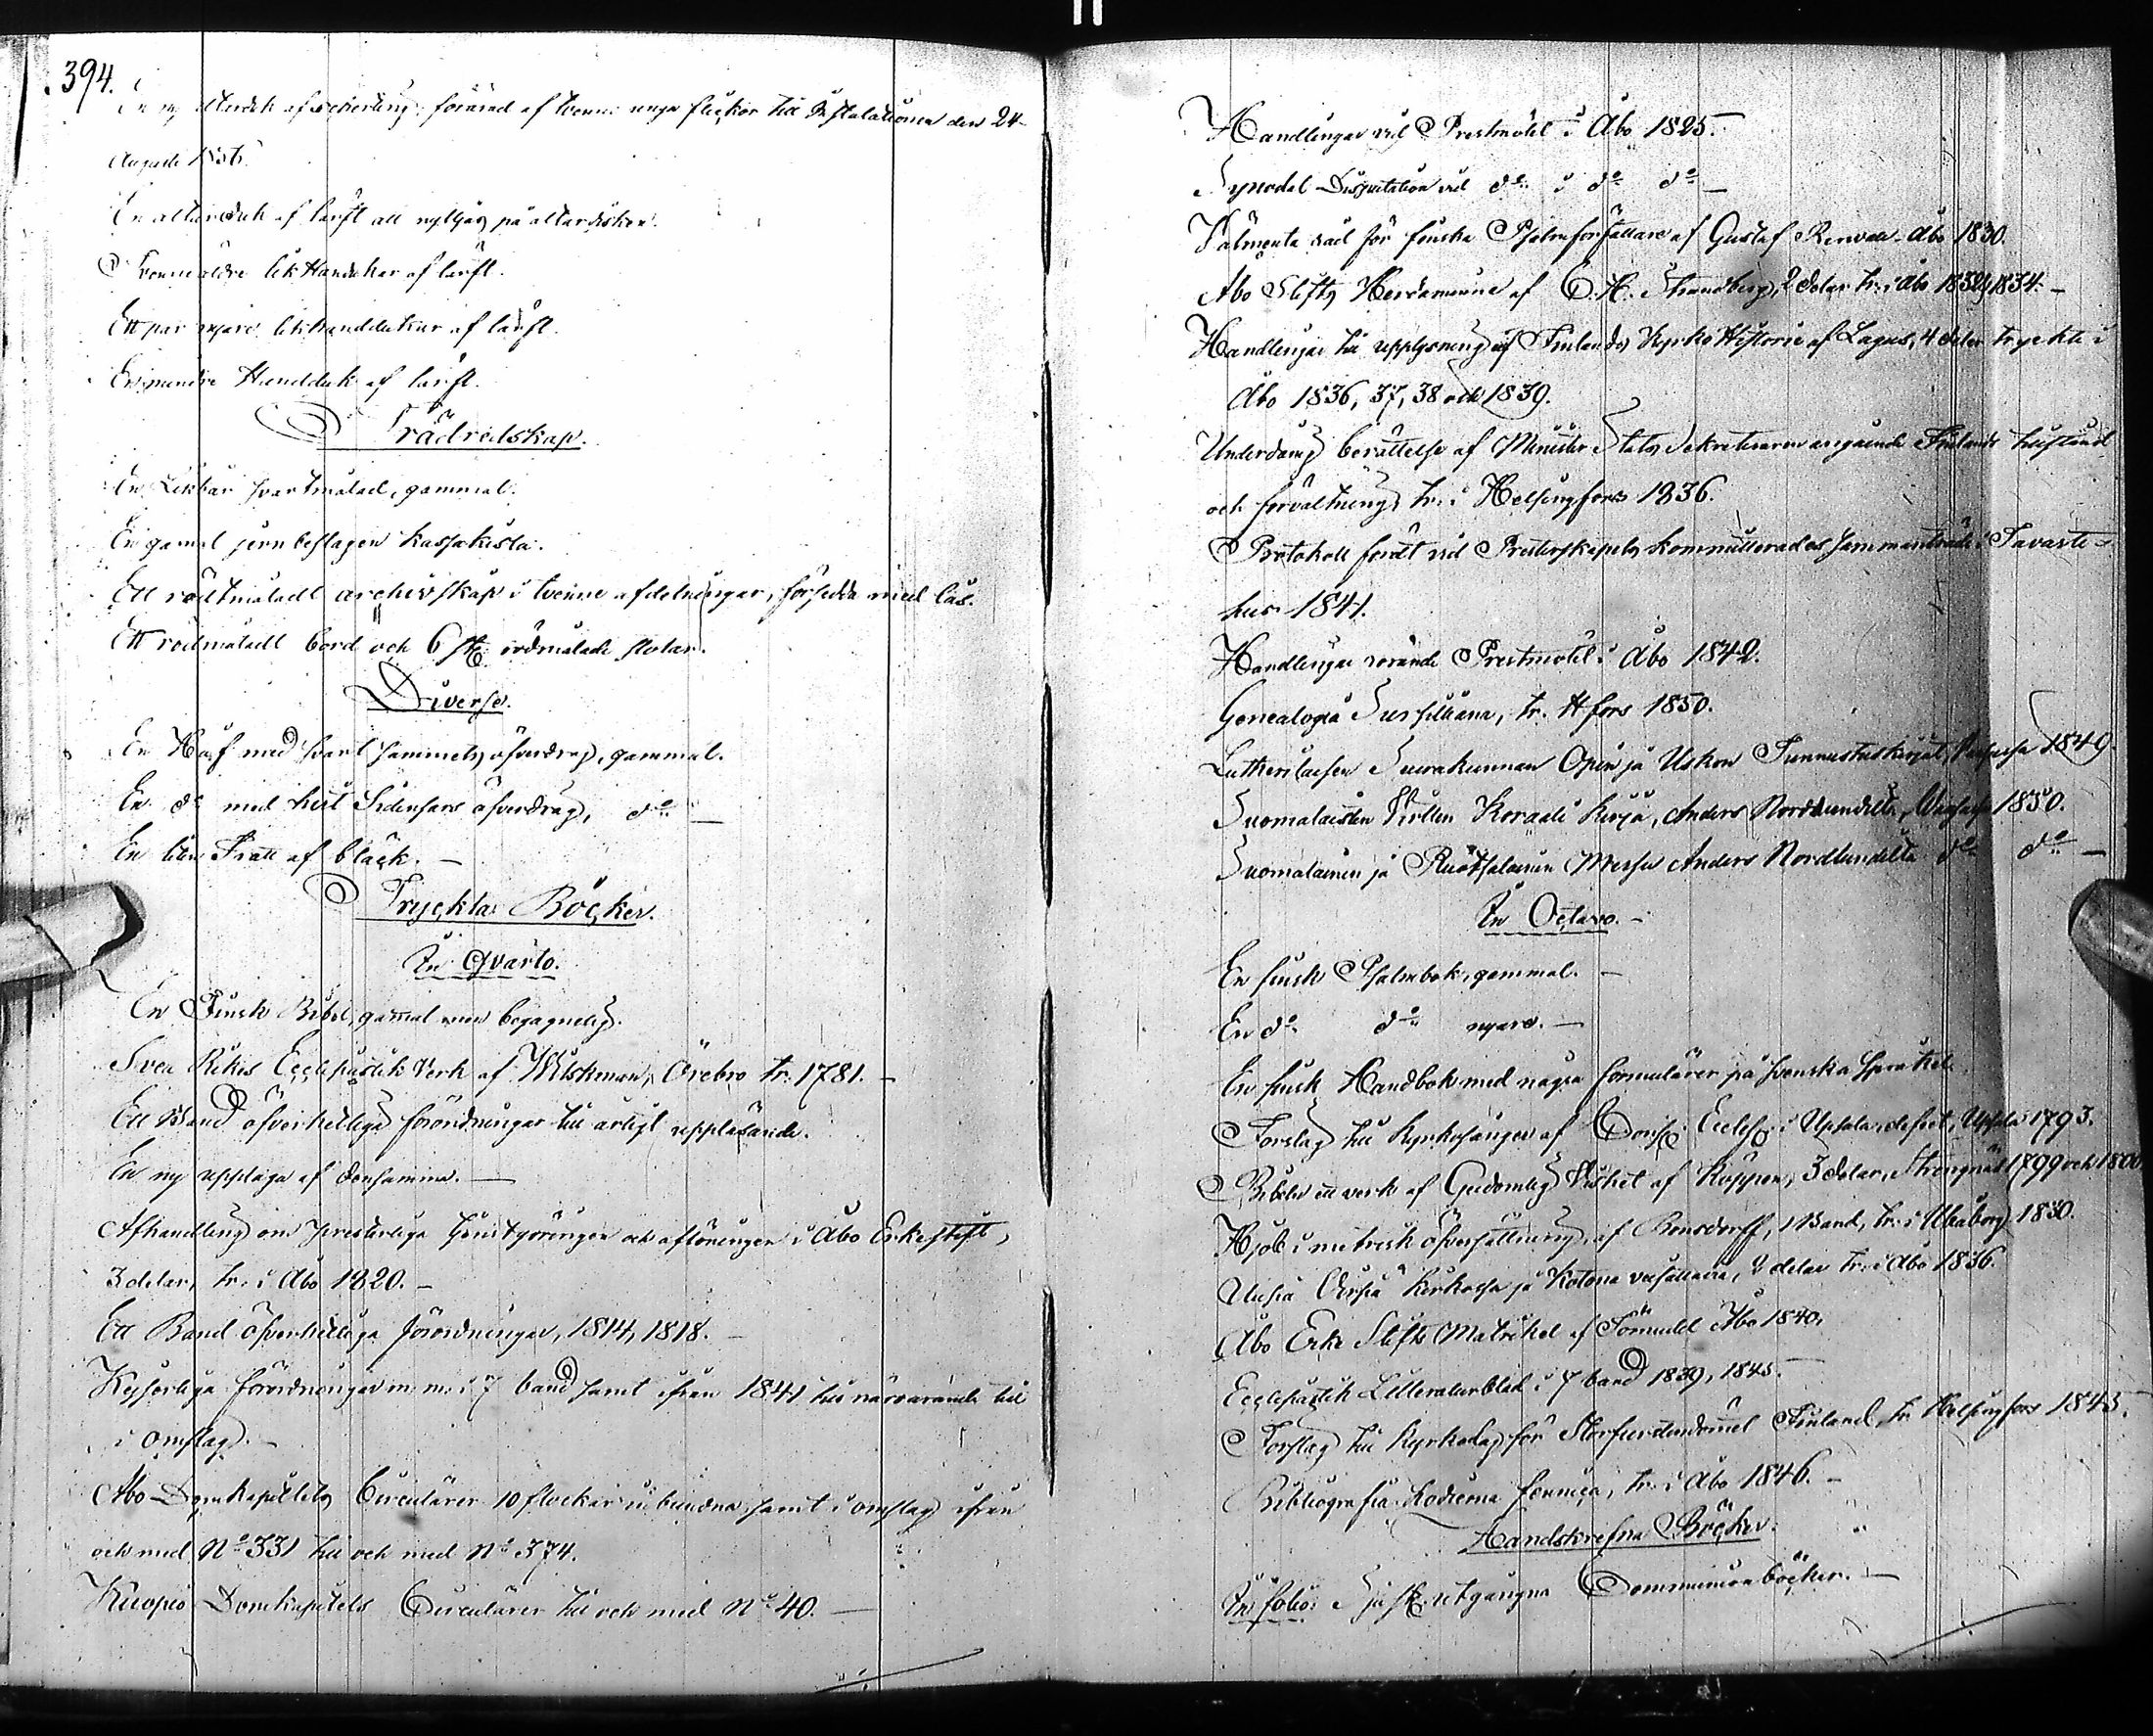 394.
En ny altarduk af förärad af tvenne unga flickor till Installationen den 24
Augusti 1856.
En altarduk af lärft att nyttjas på altardisken.
Tvenne äldre likhandukar af lärft.
Ett par nyare likhanddukar af lärft.
En mindre Handduk af lärft.
Trädredskap.
En Likbår svartmålad, gammal.
En gamal jernbeslagen kassakista.
Ett rödtmåladt archivskåp i tvenne afdelningar, försedda med lås.
Ett rödmåladt bord och 6 st. rödmålade stolar.
Diverse.
En Håf med svart sammetsöfverdrag, gammal.
En do med hvit Sidensars öfverdrag, do —
En liten Tratt af bläck. —
Tryckta Böcker.
In Qvarto.
En Finsk Bibel, gammal men begagnelig.
Svea Rikes Ecclesiastik Verk af Wilskman, Örebro tr. 1781. —
Ett Band öfverhetliga förordningar till årligt uppläsande.
En ny upplaga af densamma. —
Afhandling om presterliga tjenstgöringen och aflöningen i Åbo Erkestift,
3 delar, tr. i Åbo 1820. —
Ett Band Öfverhetliga förordningar, 1814, 1818. —
Kejserliga förordningar m. m. i 7 band samt ifrån 1841 till närvarande tid
i omslag. —
Åbo Domkapitlets Circulärer 10 stockar inbundna samt i omslag ifrån
och med No 331 till och med No 374.
Kuopio Domkapitels Circulärer till och med No 40. —
Handlingar vid Prestmötet i Åbo 1825. —
Synodal Disputation vid do i do do —
Välmenta råd för finska Psalmförfattare af Gustaf Renvall Åbo 1830.
Åbo Stifts Herdaminne af C. H. Strandberg, 2 delar tr. i Åbo 1832, 1834. —
Handlingar till upplysning af Finlands Kyrko Historie af Lagus, 4 delar tryckte i
Åbo 1836, 37, 38 och 1839.
Underdånig berättelse af Minister Stats Sekreteraren angående Finlands tillstånd
och förvaltning, tr. i Helsingfors 1836.
Protokoll fördt vid Presterskapets kommitterades sammanträde i Tavaste-
hus 1841.
Handlingar rörande Prestmötet i Åbo 1842.
Genealogia Sursilliana, tr. Hfors 1850.
Lutherilaisen Seurakunnan Opin ja Uskon Tunnustuskirjat, 1849.
Suomalaisten Virtten Koraali kirja, Anders Nordlundilta, 1850.
Suomalainen ja Ruotsalainen Messu Anders Nordlundilta do do —
In Octavo. —
En finsk Psalmbok, gammal. —
En do do nyare. —
En finsk Handbok med några formulärer på svenska språket.
Förslag till Kyrkosången af i Upsala, Upsala 1793.
Bibeln ett verk af Gudomlig Vishet af Köppen, 3 delar, Strengnäs 1799 och 1800.
Hjob i metrisk öfversättning, af Bonsdorff, 1 Band, tr. i Uleåborg 1830.
Uusia Virsiä Kirkossa ja Kotona veisattavia, 2 delar tr. i Åbo 1836.
Åbo Erke Stifts Matrikel af Tömudd Åbo 1840.
Ecclesiastik Litteraturblad i 7 band 1839, 1845. —
Förslag till Kyrkolag för Storfurstendömet Finland, tr Helsingfors 1845.
Bibliografia Hodierna fennica, tr. i Åbo 1846. —
Handskrefna Böcker.
In folio: Sju st. utgångna Communionböcker. —